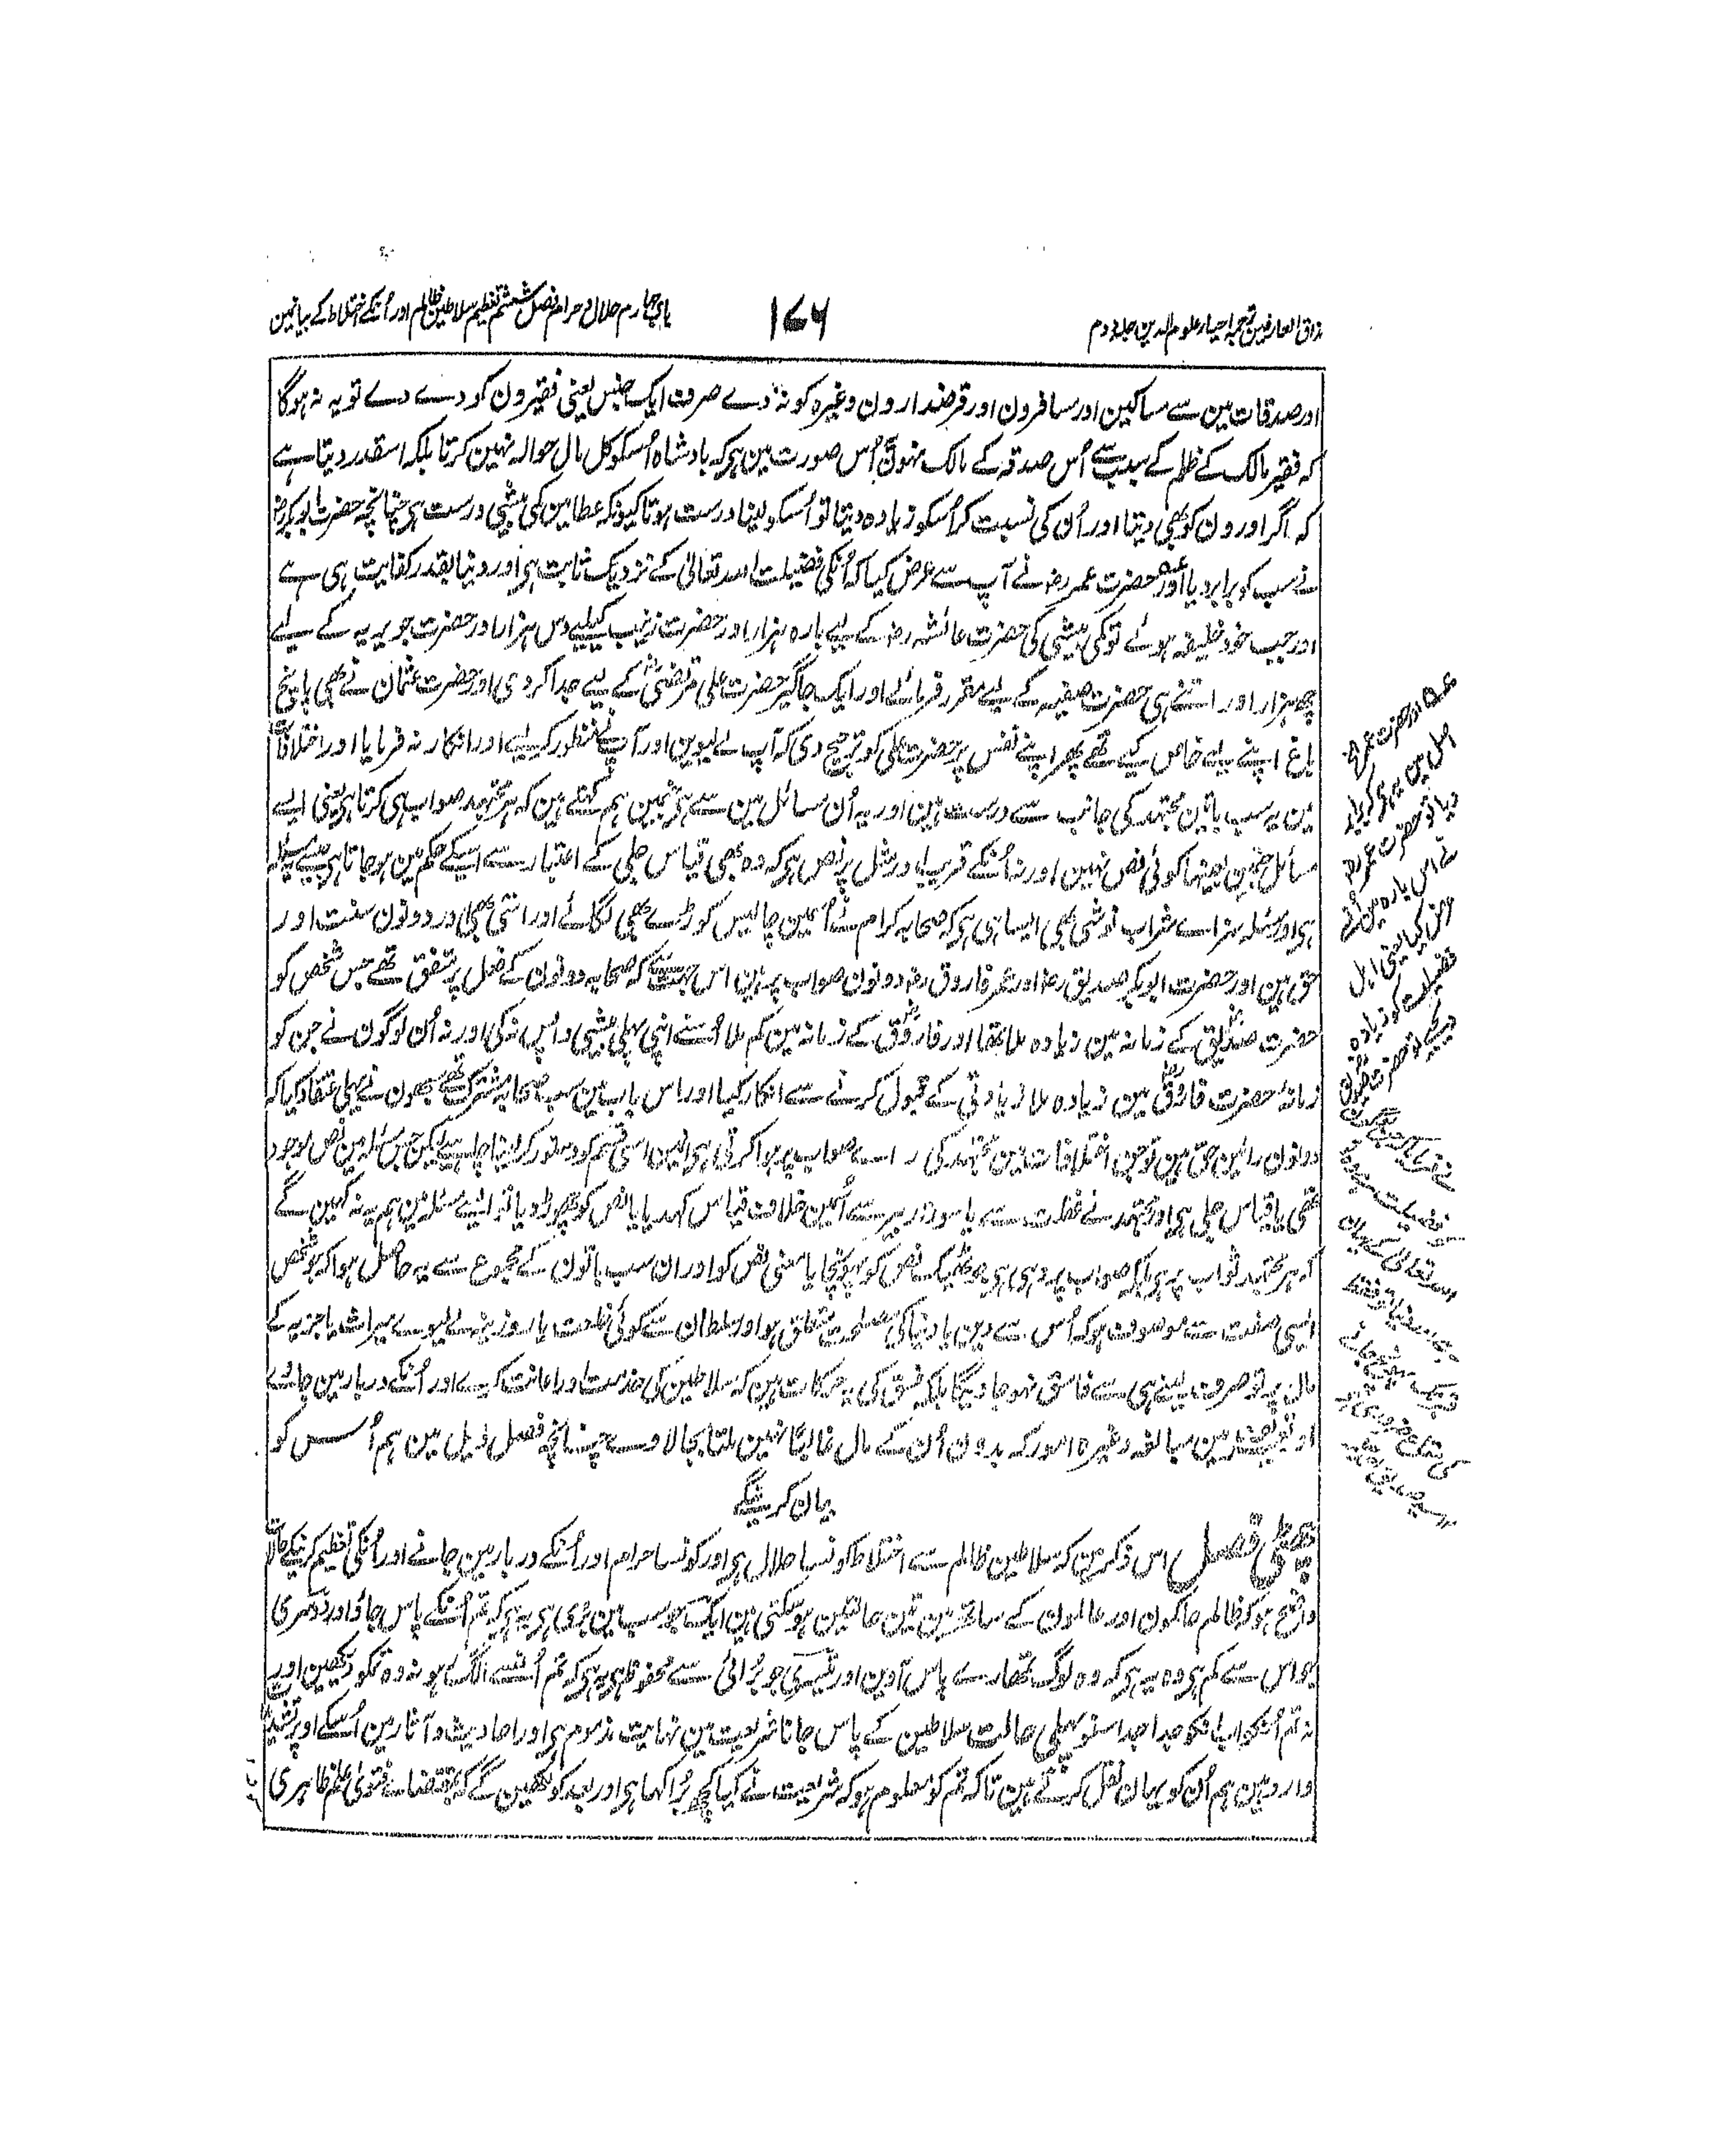 مذاق العارفین ترجمہ احیاء علوم الدین جلد دوم
۱۷۶
باب چہارم حلال و حرام فصل ششم تعظیم سلاطین ظالم اور اُنکے اختلاط کے بیان مین
اور صدقات مین سے مساکین اور مسافرون اور قرضدارون وغیرہ کو نہ دے صرف ایک جنس یعنی فقیرون کو دے دے تو یہ نہ ہوگا
کہ فقیر مالک کے ظلم کے سبب سے اُس صدقہ کے مالک نہون اُس صورت مین ہی کہ بادشاہ اُسکو کل مال حوالہ نہین کرتا بلکہ اسقدر دیتا ہے
کہ اگر اورون کو بھی دیتا اور اُن کی نسبت کر اُسکو زیادہ دیتا تو اُسکو لینا درست ہوتا کیونکہ عطا مین کمی بیشی درست ہی چنانچہ حضرت ابوبکر رض
نے سب کو برابر دیا اور حضرت عمر رض نے آپ سے عرض کیا کہ اُنکی فضیلت اللہ تعالیٰ کے نزدیک ثابت ہی اور دینا بقدر کفایت ہی ہے
اور جب خود خلیفہ ہوئے تو کمی بیشی کی حضرت عائشہ رض کے لیے بارہ ہزار اور حضرت زینب کیلیے دس ہزار اور حضرت جویریہ کے لیے
چھ ہزار اور اتنے ہی حضرت صفیہ کے لیے مقرر فرمائے اور ایک جاگیر حضرت علی مرتضیٰ کے لیے جدا کر دی اور حضرت عثمان نے بھی پانچ
باغ اپنے لیے خاص کیے تھے پھر اپنے نفس پر حضرت علی کو ترجیح دی کہ آپ لے لیوین اور آپ نے منظور کر لیے اور انکار نہ فرمایا اور اختلافات
مین یہ سب باتین مجتہد کی جانب سے درست ہین اور یہ اُن مسائل مین سے ہی جنمین ہم کہتے ہین کہ ہر مجتہد صواب ہی کرتا ہی یعنی ایسے
مسائل جنمین بعینہا کوئی نص نہین اور نہ اُنکے قریب اور مثل پر نص ہی کہ وہ بھی قیاس جلی کے اعتبار سے اُسیکے حکم مین ہو جاتا ہی جیسے یہ مسئلہ
ہی اور مسئلہ سزاے شراب نوشی بھی ایسا ہی ہی کہ صحابہ کرام نے اُسمین چالیس کوڑے بھی لگائے اور اسّی بھی اور دونون سنت اور
حق ہین اور حضرت ابوبکر صدیق رض اور عمر فاروق رض دونون صواب پر ہین اس جہت سے کہ صحابہ دونون کے فعل پر متفق تھے جس شخص کو
حضرت صدیق کے زمانہ مین زیادہ ملا تھا اور فاروق کے زمانہ مین کم ملا اُسنے اپنی پہلی بیشی واپس نہ کی اور نہ اُن لوگون نے جن کو
زمانہ حضرت فاروق مین زیادہ ملا زیادتی کے قبول کرنے سے انکار کیا اور اس باب مین سب صحابہ مشترک تھے سبھون نے یہی اعتقاد کیا کہ
دونون رائین حق ہین تو جن اختلافات مین مجتہد کی راے صواب پر ہوا کرتی ہی اُنمین اسی قسم کو دستور کر لینا چاہیے لیکن جس مسئلہ مین نص موجود
تھی یا قیاس جلی ہی اور مجتہد نے غفلت سے یا سوء تدبیر سے اُسمین خلاف قیاس کہدیا یا نص کو چھوڑ دیا تو ایسے مسئلہ مین ہم یہ نہ کہین گے
کہ ہر مجتہد ثواب پر ہی بلکہ صواب پر وہی ہی جو ٹھیک نص کو پہونچا یا معنی نص کو اور ان سب باتون کے مجموع سے یہ حاصل ہوا کہ جو شخص
ایسی صفت سے موصوف ہو کہ اُس سے دین یا دنیا کی مصلحت متعلق ہو اور سلطان سے کوئی خلعت یا روزینہ لے لیوے میراث یا جزیہ کے
مال پر تو صرف لینے ہی سے فاسق نہو جاویگا بلکہ فسق کی یہ حرکات ہین کہ سلاطین کی خدمت اور اعانت کرے اور اُنکے دربار مین جاوے
اور تعریف مین مبالغہ وغیرہ امور کہ بدون اُن کے مال غالبًا نہین ملتا بجا لاوے چنانچہ فصل ذیل مین ہم اُس کو
بیان کرینگے
چھٹی فصل اس ذکر مین کہ سلاطین ظالم سے اختلاط کونسا حلال ہی اور کونسا حرام اور اُنکے دربار مین جانے اور اُنکی تعظیم کرنیکے حالات
واضح ہو کہ ظالم حاکمون اور عاملون کے ساتھ تین حالتین ہو سکتی ہین ایک جو سب مین بُری ہی یہ ہی کہ تم اُنکے پاس جاؤ اور دوسری
جو اس سے کم ہی وہ یہ ہی کہ وہ لوگ تمھارے پاس آوین اور تیسری جو بُرائی سے محفوظ ہی یہ ہی کہ تم اُنسے الگ ہو نہ وہ تمکو دیکھین اور
نہ تم اُنکو اب انکو جدا جدا سنو پہلی حالت سلاطین کے پاس جانا شریعت مین نہایت مذموم ہی اور احادیث و آثار مین اُسکے اوپر تشدید
وارد ہین ہم اُن کو یہان نقل کرتے ہین تاکہ تم کو معلوم ہو کہ شریعت نے کیا کچھ بُرا کہا ہی اور بعد کو لکھین گے کہ بمقتضاے فتویٰ علم ظاہری
اور حضرت عمر رض
اصل مین یہ ہی کہ
دیا تو حضرت عمر رض
نے اس بارہ مین اُنسے
عرض کیا یعنی اہل
فضیلت کو زیادہ
دیجیے تو حضرت صدیق